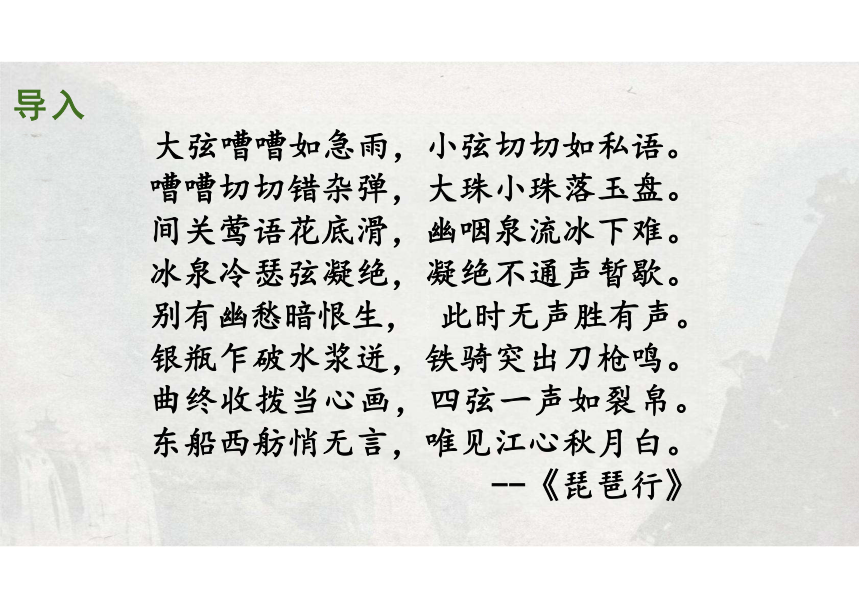 导入
大弦嘈嘈如急雨，小弦切切如私语。
嘈嘈切切错杂弹，大珠小珠落玉盘。
间关莺语花底滑，幽咽泉流冰下难。
冰泉冷瑟弦凝绝，凝绝不通声暂歇。
别有幽愁暗恨生， 此时无声胜有声。
银瓶乍破水浆迸，铁骑突出刀枪鸣。
曲终收拨当心画，四弦一声如裂帛。
东船西舫悄无言，唯见江心秋月白。
--《琵琶行》